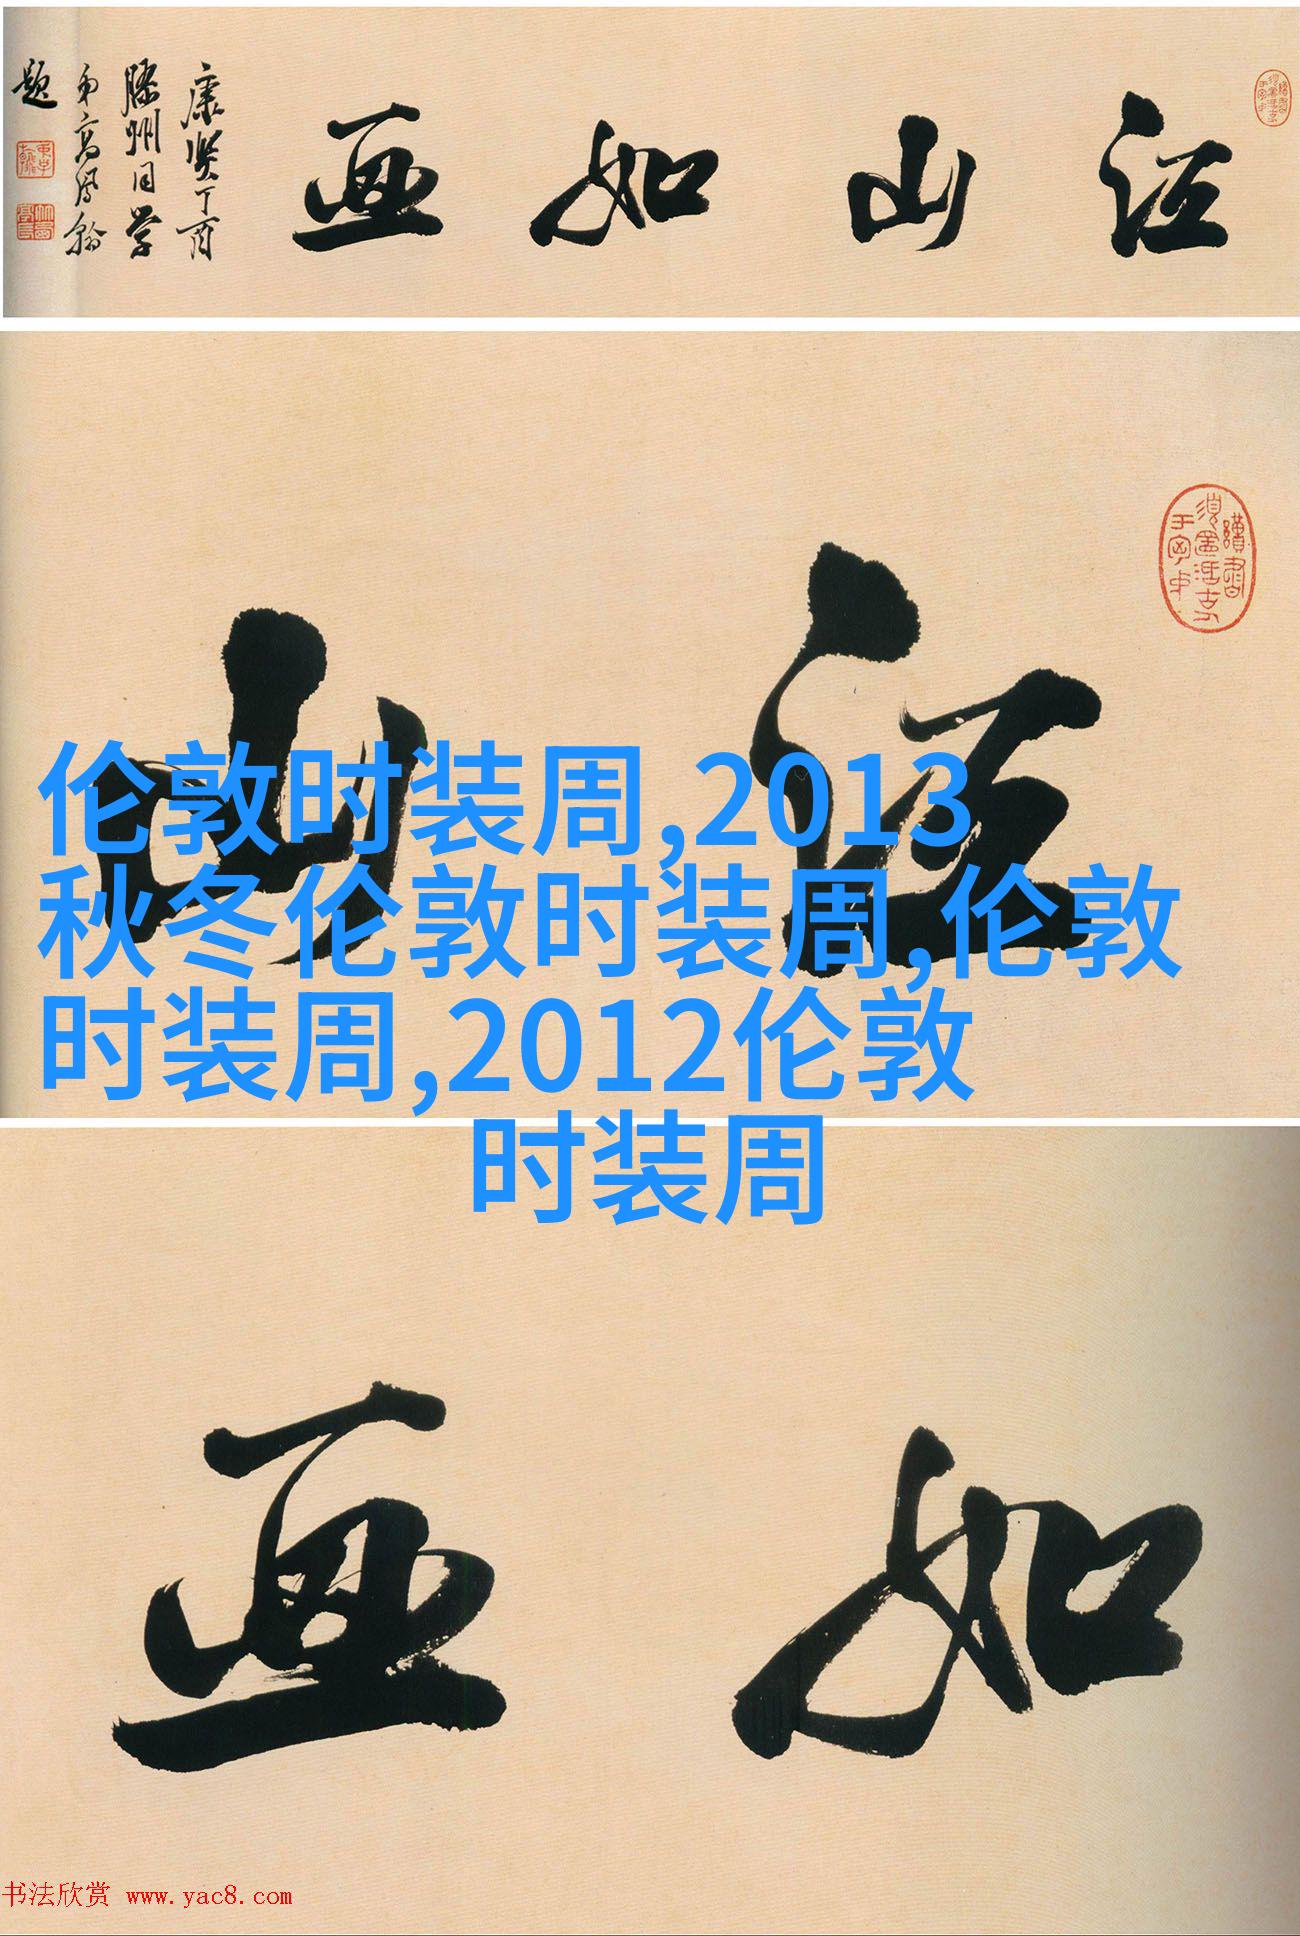 江山如画
康贤丁酉
滕州同学
弟高凤翰
题
江山
伦敦时装周,2013
秋冬伦敦时装周,伦敦
时装周,2012伦敦
时装周
如画
书法欣赏 www.yac8.com